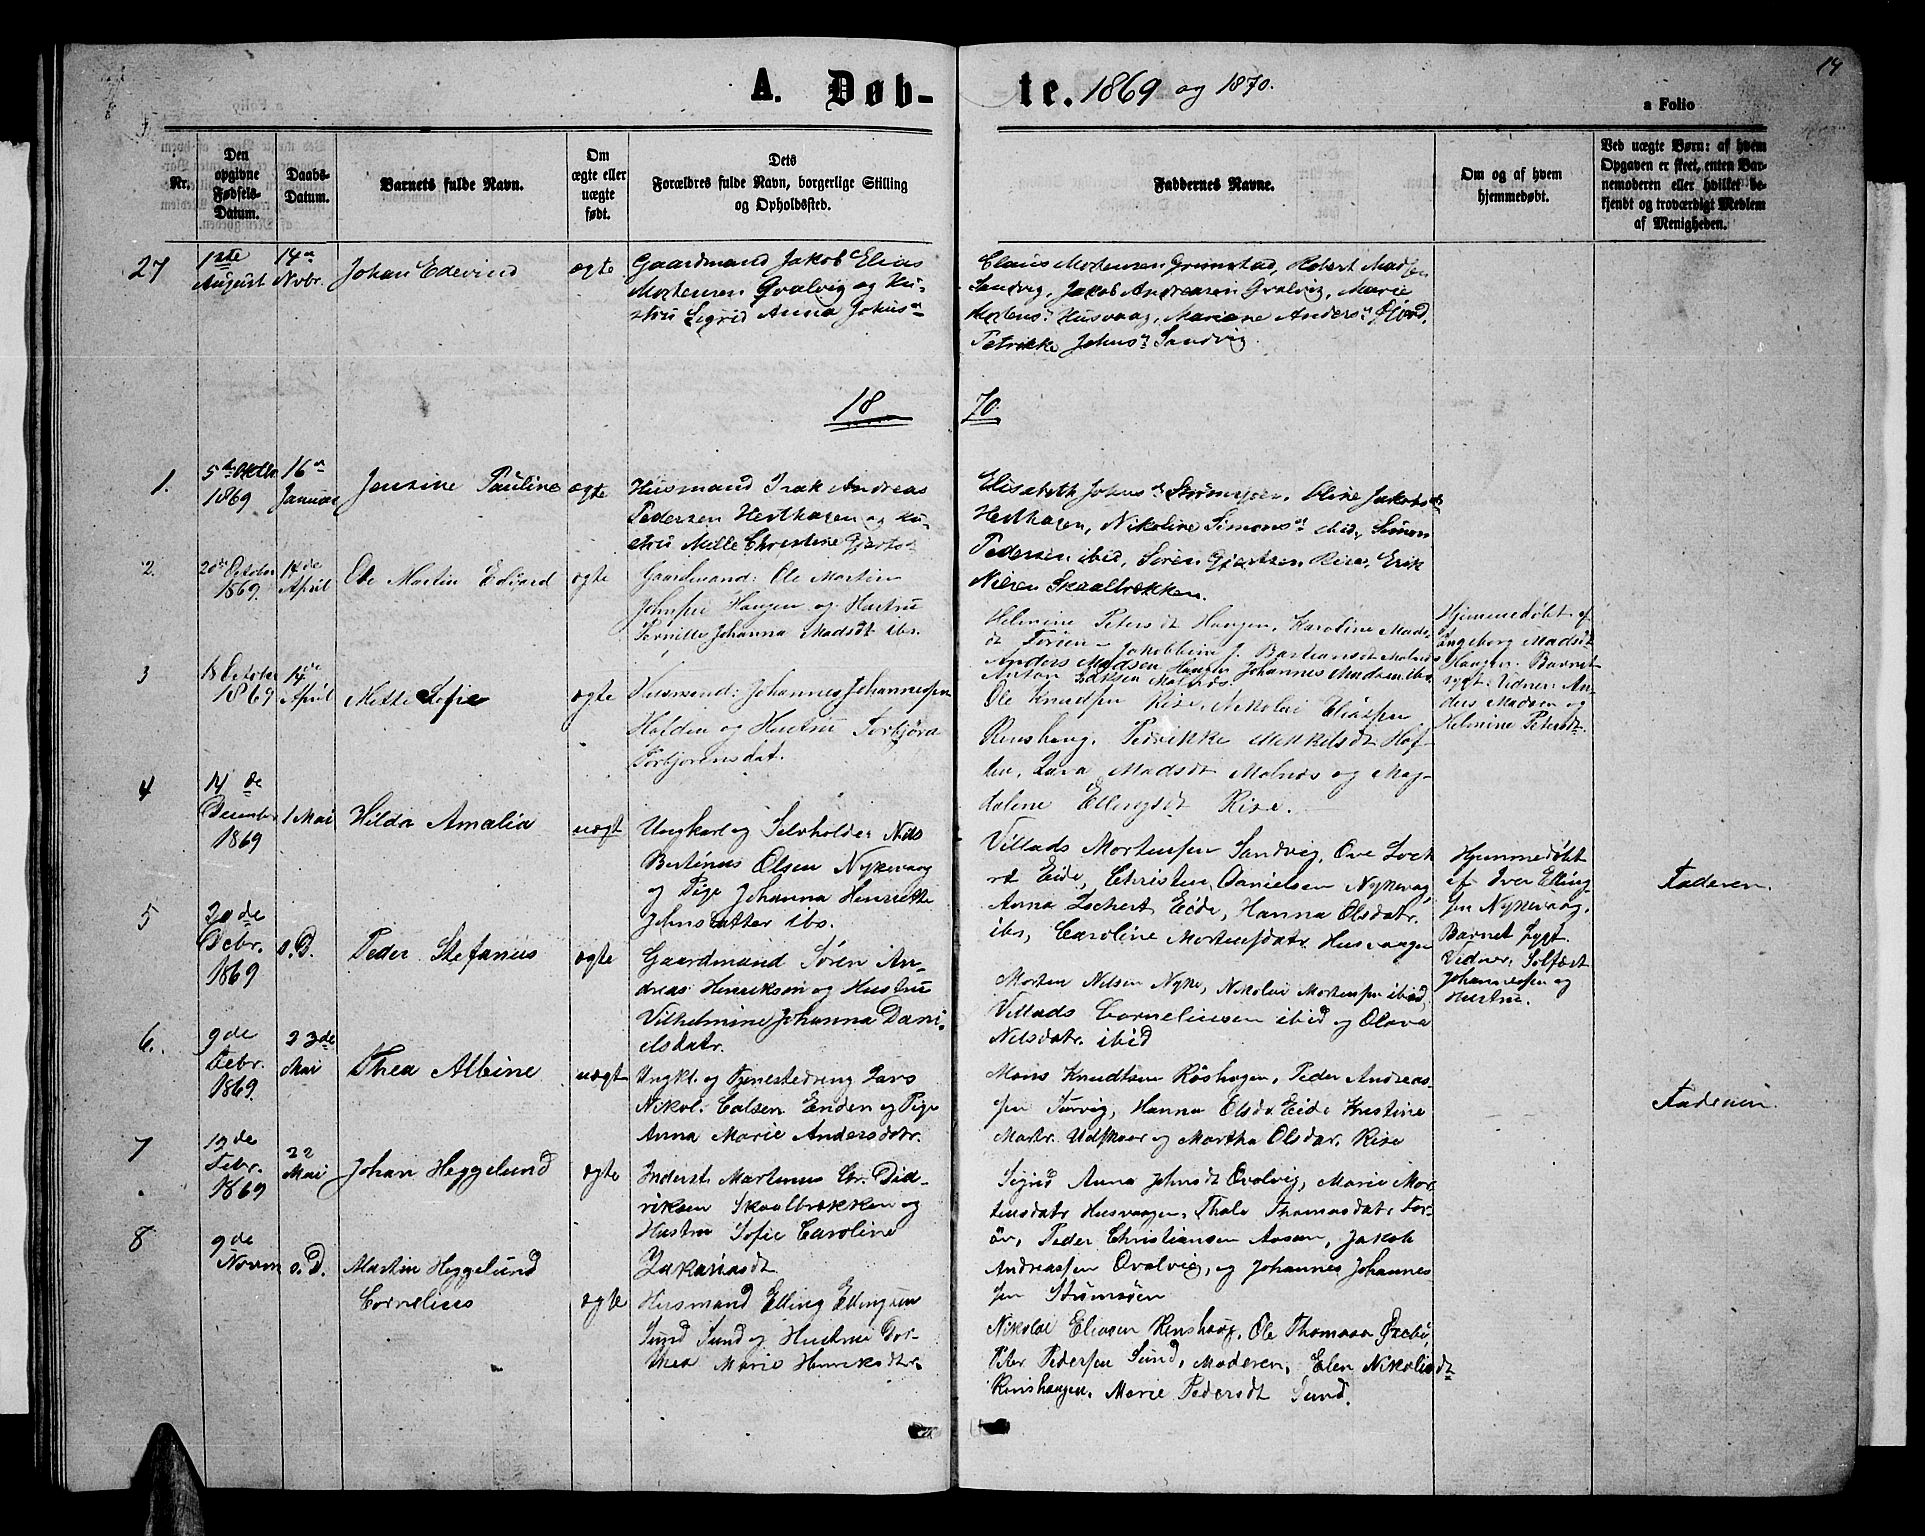 14
A. Døb-
te. 1869 og 1870.
a Folio
Nr.
Den
opgivne
Fødsels-
Datum.
Daabs-
Datum.
Barnets fulde Navn.
Om
ægte eller
uægte
født.
Dets
Forældres fulde Navn, borgerlige Stilling
og Opholdssted.
Faddernes Navne.
Om og af hvem
hjemmedøbt.
Ved uægte Børn: af hvem
Opgaven er skeet, enten Bar-
nemoderen eller hvilket be-
kjendt og troværdigt Medlem
af Menigheden.
27
1ste
August
14de
Novbr.
Johan Edevind
ægte
Gaardmand Jakob Elias
Mortensen Qvalvig og Hu-
stru Sigrid Anna Johnsd.
Claus Mortensen Grimstad, Robert Mads
Sandvig, Jakob Andreasen Qvalvig, Marie
Mortensd. Husvaag, Mariane Andersd. Fjord,
Petrikke Johnsd. Sandvig.
18
70.
1.
5te Oktbr.
1869
16de
Januar
Jensine Pauline
ægte
Husmand Isak Andreas
Pedersen Hesthagen og Hu-
stru Mille Christine Gjertsd.
Elisabeth Johnsd. Strømsjøen, Oline Jakobsd.
Hesthagen, Nikoline Simonsd. ibid, Simon
Pedersen ibid, Søren Gjertsen Rise, Erik
Nilsen Skaalbrækken.
2.
20de October
1869.
14de
April
Ole Martin Edvard
ægte
Gaardmand: Ole Martin
Johnsen Haugen og Hustru
Pernille Johanna Madsdt ibs.
Helmine Petersdt Haugen, Karoline Mads-
dt Forøen, Jakobbine J. Bastiansdt Malnæs
Anders Madsen Haugen, Johannes Madsen ibs
Anton Isaksen Malnæs.
Hjemmedøbt af
Ingeborg Madsdt
Haugen. Barnet
sygt. Vidner: An-
ders Madsen og
Helmine Petersdt.
3
18 October
1869
14de
April
Mette Sofie
ægte
Husmand: Johannes Johannessen
Hofden og Hustru Torbjøra
Torbjørensdat.
Ole Knudsen Rise, Nikolai Eliassen
Renshaug, Petrikke Mikkelsdt Hof-
den, Lara Madsdt Malnæs og Mag-
dalene Ellingsdt Rise.
4
14de
December
1869
1 Mai
Hilda Amalia
uægt
Ungkarl og Selvholder Nils
Bertinus Olsen Nykevaag
og Pige Johanna Henriette
Johnsdatter ibs.
Villads Mortensen Sandvig, Ove Loch-
rt Eide, Christen Danielsen Nykevag,
Anna Lochert Eide, Hanna Olsdatr.
ibs, Caroline Mortensdatr. Husvaagen
Hjemmedøbt
af Iver Elling-
sen Nykevaag.
Barnet sygt.
Vidner: Solfæst
Johannessen og
Hustru.
Faderen.
5
20de
Debr.
1869
s. D.
Peder Stefanus
ægte
Gaardmand Søren An-
dreas Henriksen og Hustru
Vilhelmine Johanna Dani-
elsdatr.
Morten Nilsen Nyke, Nikolai Mortensen ibid,
Villads Corneliussen ibid og Olava
Nelsdatr. ibid
6.
9de
Debr.
1869.
22de
Mai
Thea Albine
uægt
Ungkl. og Tjenestedreng Lars
Nikol. Carlsen Enden og Pige
Anna Marie Andersdatr.
Mons Knudtsen Røshagen, Peder Andreas-
sen Tunvig, Hanna Olsdr. Eide Kristine
Martr. Udskaar og Martha Olsdar. Rise
Faderen.
7
12de
Febr.
1869
22
Mai
Johan Heggelund
ægte
Inderst Martinus Chr. Did-
riksen Skaalbrækken og
Hustru Sofie Caroline
Zakariasdt
Sigrid Anna Johnsdt Qvalvig, Marie Mor-
tensdatr Husvaagen, Thale Thomasdatr For-
øn, Peder Christiansen Aasan, Jakob
Andreassen Qvalvig, og Johannes Johannes
sen Strømsøen
8
9de
Novm
s. D.
Martin Heggelund
Cornelius
ægte
Husmand Elling Ellingsen
Sund Sund og Hustru Dor-
thea Marie Henriksdtr.
Nikolai Eliasen Renshaug, Ole Thomasen Øxebø,
Peter Pedersen Sund, Moderen, Elen Nikolaidt
Renshaugen, Marie Pedersdt Sund.